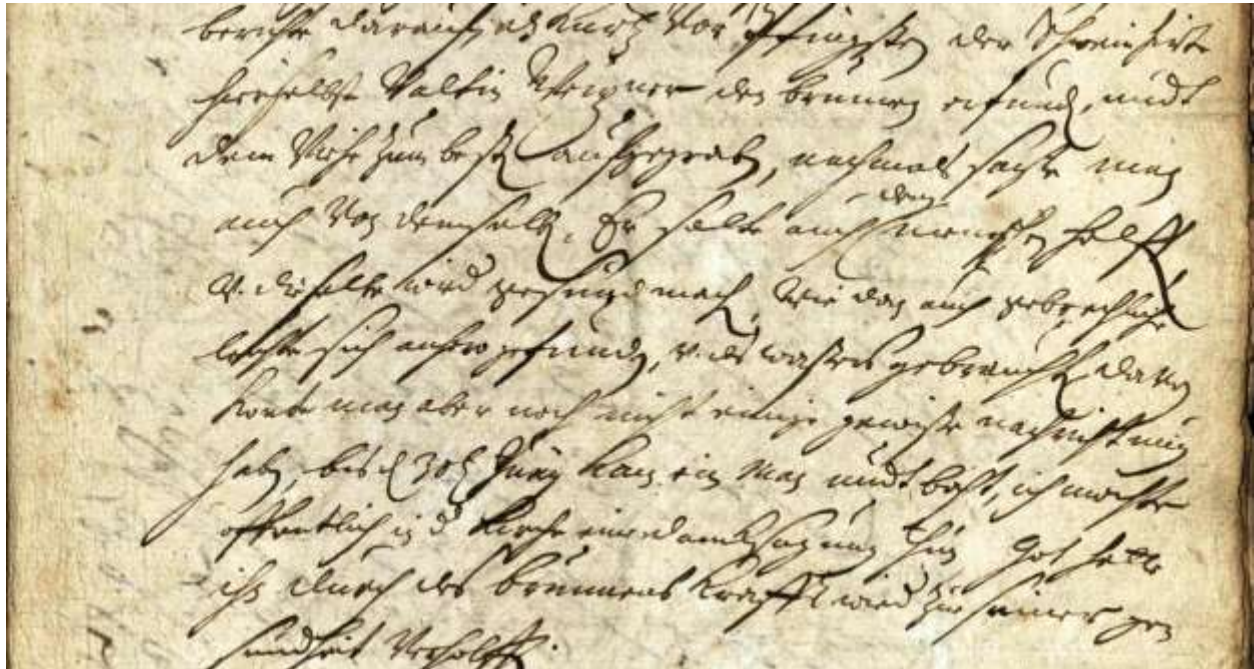 berichte darauf, dz kurtz vor Pfingsten der Schweinhirte
hierselbst Valtin den brunnen erfund, undt
dem Viehe zum best aufgegrab, nachmals sagte man
auch von demselb, Er solte auch den menschen helff
v. dieselbe wied gesund mach, wie dan auch gebrechliche
leuthe sich anhero gefund, v. des wassers gebraucht, davon
konte man aber noch nicht einige gewisse nachricht
hab, bis d 30t Juny kam ein Man undt baht, ich mochte
offentlich in d Kirche eine dancksagung thun Got hette
ihn durch des brunnens krafft wied zu seiner gesundheit verholff.